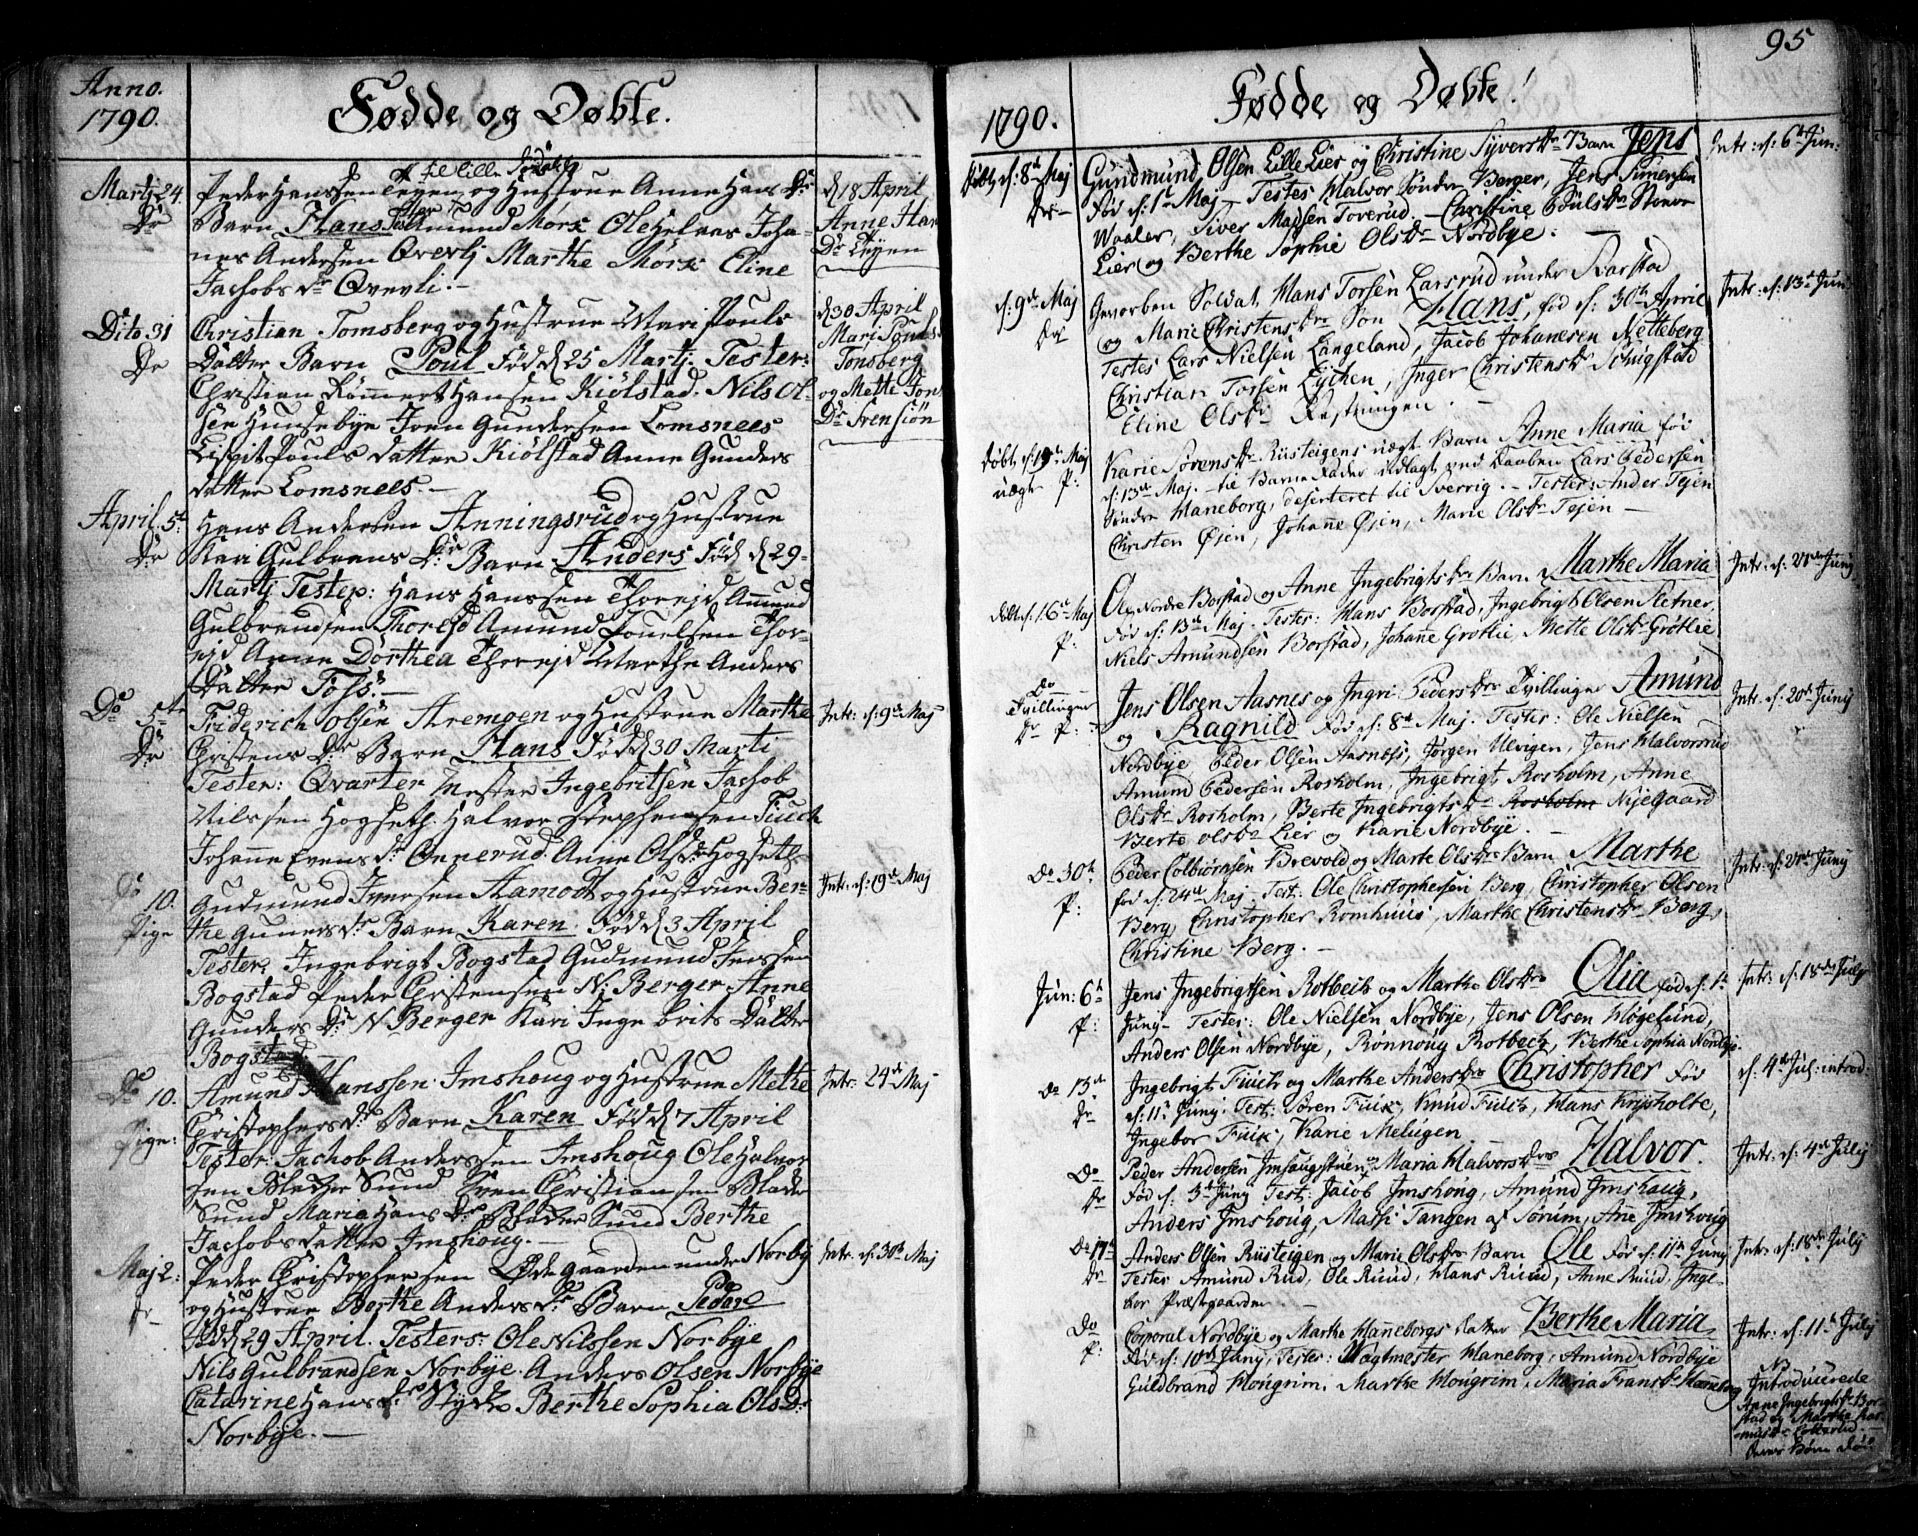 Anno.
1790.
Fødde og Døbte.
Martj 24.
Dr
Peder Hanssen Teyen og Hustrue Anne Hans Dr
Barn Hans Test Amund Mørk Ole Helnes Joha-
nes Andersen Qverlj Marthe Mørk Eline
Jachobs dr Qverli.-
d 18 April
Anne Han
Dr Teyen
Dito 31
Dr
Christian Tomsberg og Hustrue Mari Pouls
Datter Barn Poul Fød d 25 Martj Tester:
Christian Rømmert Hansen Kiølstad. Nils Ol-
sen Hunsebye Joen Gundersen Lomsnees
Lispit Pouls datter Kiølstad Anne Gunders
datter Lomsnees.-
d 30 April
Mari Pouls
Tonsberg
og Mette Jon
Dr Svensiøn
April. 5t
Dr
Hans Andersen Anningsrud og Hustrue
Kari Gulbrans Dr Barn Anders Fød d 29-
Martj Tester: Hans Hanssen Thorejd Amund
Gulbrandsen Thorejd Amund Pouelsen Thor-
ejd Anne Dorthea Thorejd Marthe Anders
Datter Foss.-
Do 5te
Dr
Friderich Olsen Aremgen og Hustrue Marthe
Christens Dr Barn Hans Fød d 30 Marti
Tester: Qvarter Mester Ingebritsen Jachob
Nilssen Hogseth. Halvor Stephensen Fiuch
Johanne Evens dr Onnerud. Anne Ols dr Hogseth
Intr: d: 9de Maj
Do 10.
Pige
Gudmund Iversen Aamodt og Hustrue Ber-
the Guners dr Barn Karen. Fød d 3 April
Tester. Ingebrigt Bogstad Gudmund Jenssen
Bogstad Peder Christensen N: Berger Anne
Gunders Dr N Berger Kari Inge brits Datter
Bogstad
Intr: d: 19de Maj
Do 10.
Pige:
Amund Hanssen Imshoug og Hustrue Methe
Christophers dr Barn Karen Fød d 7 April
Tester: Jachob Anderssen Imshoug Ole Halvor
sen Blader Sund Even Christiansen Blader
Sund Maria Hans Dr Blader Sund Berthe
Jachobs datter Imshoug.-
Intr: 24de Maj
Maj 2:
dr-
Peder Christophersen Ødegaarden under Norby
og Hustrue Berthe Anders dr Barn Peder
Fød d 29 April. Testers: Ole Nilssen Norbye
Nils Gulbrandsen Norbye. Anders Olsen Norbye
Catarine Hans dr Berthe Sophia Ols Dr
Norbye.-
Intr. d: 30te Maj
95
1790.
Fødde og Døbte!
Døbt d: 8de Maj
Dr-
Gundmund Olsen Lille Lier og Christine Syvers dr Barn Jens
Fød d: 1te Maj- Testes Halvor Søndre Berger, Jens Simersen
Waaler, Siver Madsen Toverud.- Christine Pouls dr Store
Lier og Berthe Sophie Ols dr Nordbye.-
Intr: d: 6te Jun:
d: 9de Maj
Dr
Gevorben Soldat, Hans Torsen Larsrud under Skarstad
og Marie Christens dr Søn Hans, fød d: 30te April
Testes Lars Nielsen Langeland, Jacob Johanesen Netteberg
Christian Torsen Eychen, Inger Christens dr Schugstad
Eline Ols dr Rustningen.-
Intr: d: 13de Jun
Døbt d: 19de Maj
uægte P:
Karie Sørens dr Rusteigens uægt Barn Anne Maria fød
d: 13de Maj.- til Barne Fader udlagt ved Daaben Lars Pedersen
Søndre Haneborg, deserteret til Sverrig.- Tester: Ander Tejen
Christen Øjen, Johanne Øjen, Marie Ols dr Tejen-
Døbt d: 16de Maj
P:
Ole Nordre Borstad og Anne Ingebrigts dr Barn Marthe Maria
Fød d: 13de Maj. Tester: Hans Borstad, Ingebrigt Olsen Sletner,
Niels Amundsen Borstad, Johane Grøtlie, Mette Ols dr Grøtlie
Intr: d: 20de Junj
Do
Tvillinger
Dr P:
Jens Olsen Aasnes og Ingri Peders dr Tvillinger Amund
og Ragnild Fød d: 8de Maj. Tester: Ole Nielsen
Nordbye, Peder Olsen Aasness, Jørgen Ulvigen, Jens Halvorsrud
Amund Pedersen Rosholm, Ingebrigt Rosholm, Anne
Ols dr Rosholm, Berte Ingebrigts dr Rosholm Nyegaard
Berte Ols dr Lier og Karie Nordbye.-
Intr: d: 20de Junij
Do 30te
P:
Peder Colbiørnsen Brevold og Marte Ols dr Barn Marthe
fød d: 24de Maj Test: Ole Christophersen Berg, Christopher Olsen
Berg, Christopher Romhuus, Marthe Christens dr Berg,
Christine Berg.-
Intr: d: 20de Junij
Jun: 6te
P:
Jens Ingebrigtsen Rotbech og Marthe Ols dr Olia fød d: 1te
Junj- Tester: Ole Nielsen Nordbye, Jens Olsen Høgelund,
Anders Olsen Nordbye, Rønnoug Rotbech, Berthe Sophia Nordbye.
Intr: d: 18de Julj
do 13de
Dr
Ingebrigt Fuich og Marthe Anders dr Christopher Fød
d: 11te Junj: Test: Søren Fuik, Knud Fuich, Hans Krysholte,
Ingebor Fuik, Karie Melugen
d: 4de Jul: introd:
Do
Dr
Peder Andersen Imsaugstuen, Maria Halvors dr Halvor.
Fød d: 5te Junj Test: Jacob Imshoug, Amund Imshoug,
Anders Imshoug, Massi Tangen af Sørum, Ane Imshoug
Intr: d: 4de Julij
Do 17de
Dr
Anders Olsen Rusteigen og Marie Ols dr Barn Ole Fød d: 11te Junj
Tester Amund Rud, Ole Ruud, Hans Ruud, Anne Ruud, Inge-
bor Præstgaarden.-
Intr: d: 18de Julij
Do
P:
Corporal Nordbye og Marthe Haneborgs datter Berthe Maria,
Fød d: 10de Junj, Tester: Wagtmester Haneborg, Amund Nordbye
Guldbrand Hougrim, Marthe Hougrim, Maria Frans dr Haneborg
Intr: d: 11te Julij
NB
Introducerede
Anne Ingebrigts dr Bor-
stad og Marthe Ras-